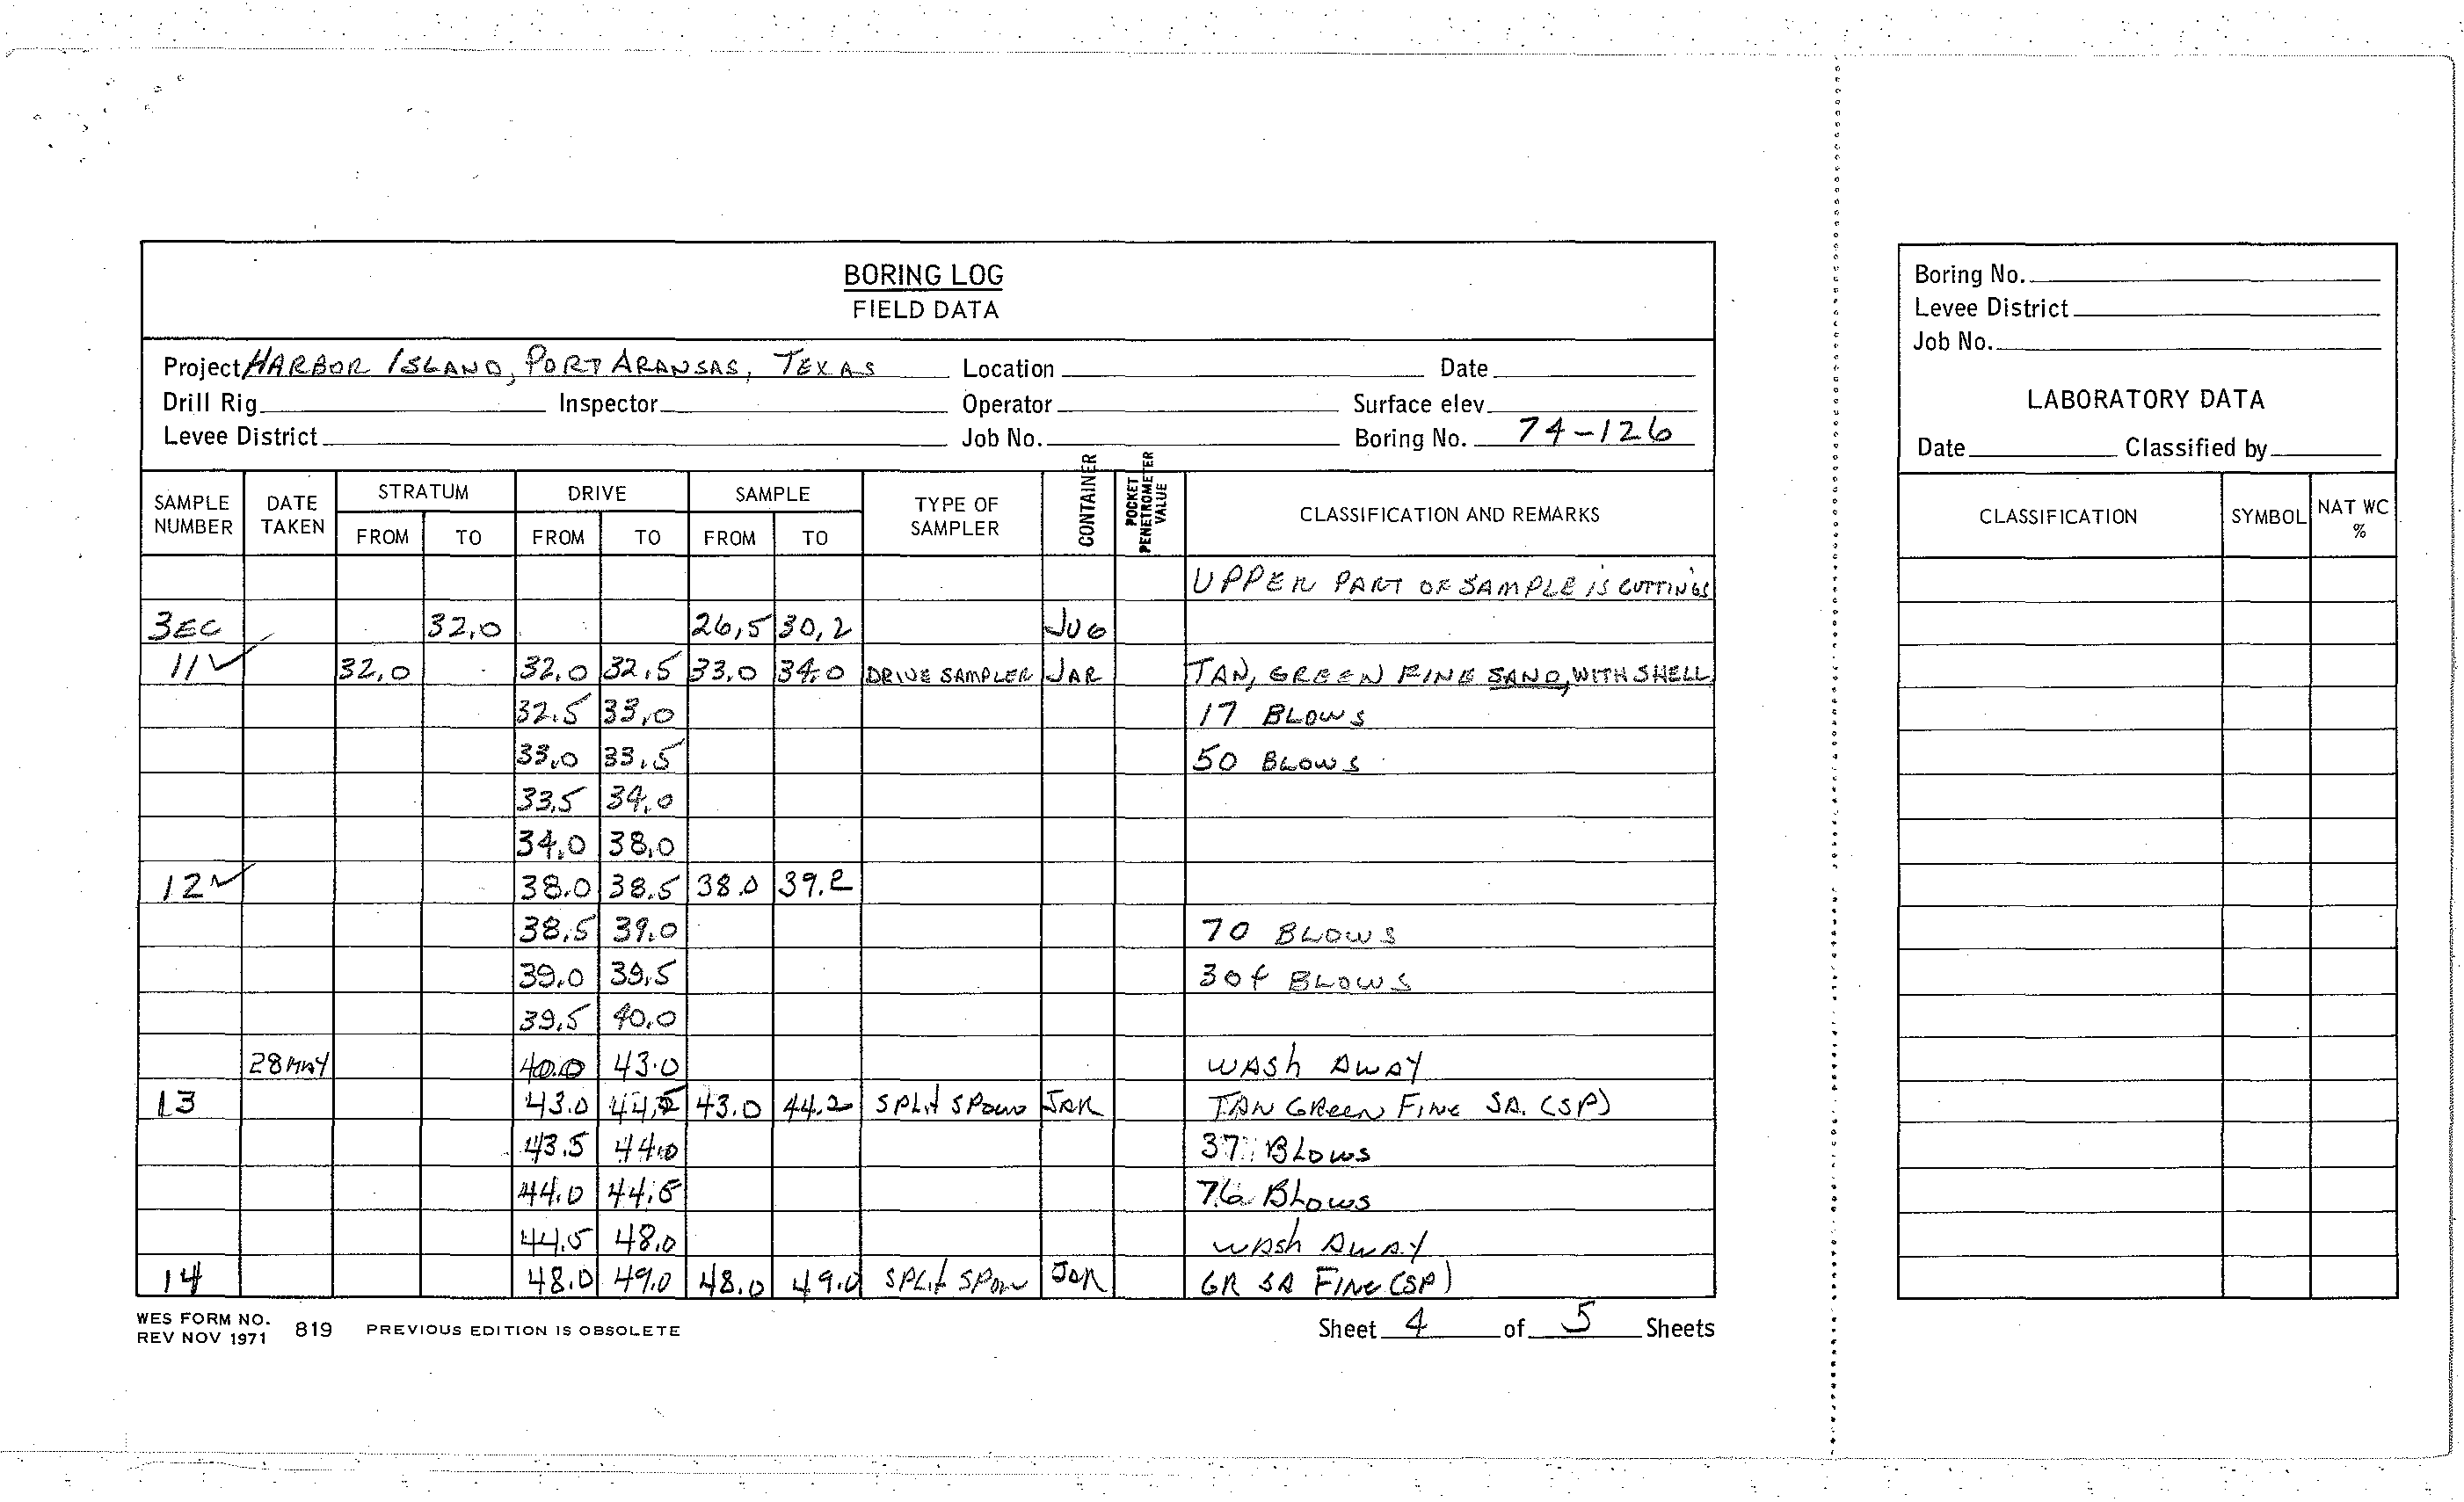 BORING LOG
FIELD DATA
Project HARBOR ISLAND, PORT ARANSAS, TEXAS Location Date
Drill Rig Inspector Operator Surface elev.
Levee District Job No. Boring No. 74-126
SAMPLE NUMBER DATE TAKEN STRATUM FROM TO DRIVE FROM TO SAMPLE FROM TO TYPE OF SAMPLER CONTAINER POCKET PENETROMETER VALUE CLASSIFICATION AND REMARKS
UPPER PART OF SAMPLE IS CUTTINGS
3EC 32.0 26.5 30.2 JUG
11 ✓ 32.0 32.0 32.5 33.0 34.0 DRIVE SAMPLER JAR TAN, GREEN FINE SAND, WITH SHELL
32.5 33.0 17 BLOWS
33.0 33.5 50 BLOWS
33.5 34.0
34.0 38.0
12 ✓ 38.0 38.5 38.0 39.2
38.5 39.0 70 BLOWS
39.0 39.5 BLOWS
39.5 40.0
28 MAY 40.0 43.0 WASH AWAY
13 43.0 43.0 44.2 SPLIT SPOON JAR TAN GREEN FINE SA. (SP)
43.5 44.0 37 BLOWS
44.0 44.5 76 BLOWS
44.5 48.0 WASH AWAY
14 48.0 49.0 48.0 49.0 SPLIT SPOON JAR GR SA FINE (SP)
WES FORM NO. 819 PREVIOUS EDITION IS OBSOLETE
REV NOV 1971
Sheet 4 of 5 Sheets
Boring No.
Levee District
Job No.
LABORATORY DATA
Date Classified by
CLASSIFICATION SYMBOL NAT WC %